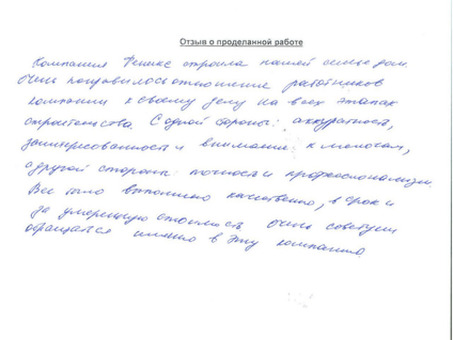 Отзыв о проделанной работе
Компания Феникс строила нашей семье дом.
Очень понравилось отношение работников
компании к своему делу на всех этапах
строительства. С одной стороны: аккуратность,
заинтересованность и внимание к мелочам,
с другой стороны: точность и профессионализм.
Все было выполнено качественно, в срок и
за умеренную стоимость очень советуем
обращаться именно в эту компанию.